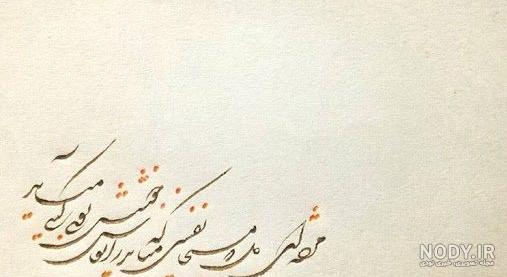 مژده ای دل که مسیحا نفسی میآید که ز انفاس خوشش بوی کسی میآید
NODY.IR